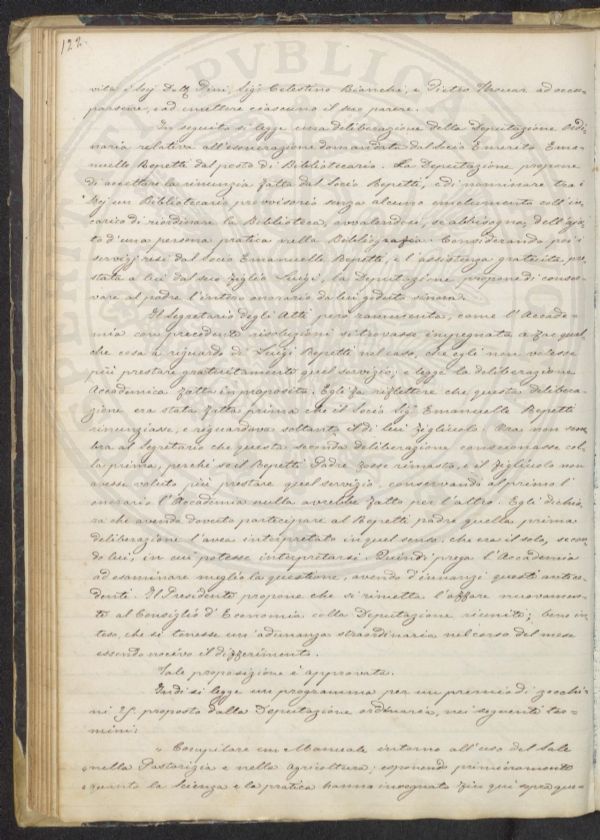 122.
vita i Sigg. Dott. Pini, Sig. Celestino Bianchi, e Pietro Thouar ad occu-
parsene, e ad emettere ciascuno il suo parere.
In seguito si legge una deliberazione della Deputazione Ordi-
naria relativa all'esonerazione domandata dal Socio Emerito Ema-
nuelle Repetti dal posto di Bibliotecario. La Deputazione propone
di accettare la rinunzia fatta dal Socio Repetti, e di nominare tra i
Sigg. un Bibliotecario provvisorio senza alcuno emolumento coll'in-
carico di riordinare la Biblioteca, avvalendosi, se abbisogna, dell'aju-
to d'una persona pratica nella Bibliografia. Considerando poi i
servizi resi dal Socio Emanuelle Repetti, e l'assistenza gratuita pre-
stata a lui dal suo figlio Luigi, la Deputazione propone di conser-
vare al padre l'intero onorario da lui goduto sinora.
Il Segretario degli Atti però rammenta, come l'Accade-
mia con precedente risoluzioni si trovasse impegnata a far qual-
che cosa a riguardo di Luigi Repetti nel caso, che egli non volesse
più prestare gratuitamente quel servizio; e legge la deliberazione
Accademica fatta in proposito. Egli fa riflettere che questa delibera-
zione era stata fatta prima che il Socio Sig. Emanuelle Repetti
rinunziasse, e riguardava soltanto il di lui figliuolo. Ora non sem-
bra al Segretario che questa seconda deliberazione consuonasse col-
la prima, perchè se il Repetti Padre fosse rimasto, e il figliuolo non
avesse voluto più prestare quel servizio, conservando al primo l'
onorario l'Accademia nulla avrebbe fatto per l'altro. Egli dichia-
ra che avendo dovuto partecipare al Repetti padre quella prima
deliberazione l'avea interpretata in quel senso, che era il solo, secon-
do lui, in cui potesse interpretarsi. Quindi prega l'Accademia
ad esaminare meglio la questione, avendo d'innanzi questi antece-
denti. Il Presidente propone che si rimetta l'affare nuovamen-
te al Consiglio d'Economia colla Deputazione riunito; bene in-
teso, che si tenesse un'adunanza straordinaria nel corso del mese
essendo nocivo il differimento.
Tale proposizione è approvata.
Indi si legge un programma per un premio di zecchi-
ni 25. proposto dalla Deputazione ordinaria, nei seguenti ter-
mini:
" Compilare un Manuale intorno all'uso del Sale
" nella Pastorizia e nella Agricoltura; esponendo primieramente
" quanto la Scienza e la pratica hanno insegnato fin qui sopra que-